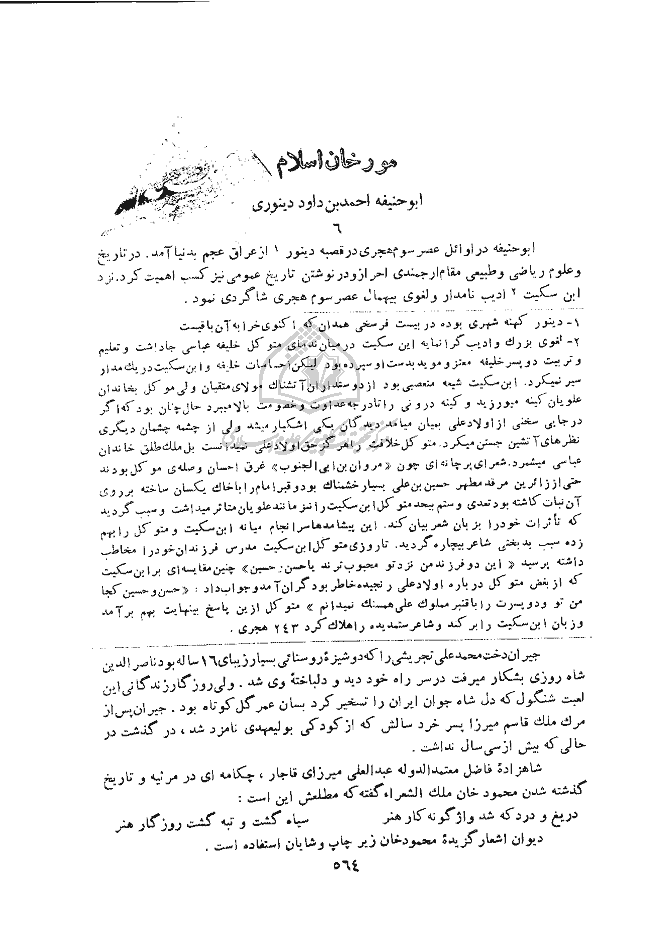 مورخان اسلام
ابوحنیفه احمدبن داود دینوری
٦
ابوحنیفه در اوائل عصر سوم هجری در قصبه دینور ۱ از عراق عجم بدنیا آمد . در تاریخ
وعلوم ریاضی وطبیعی مقام ارجمندی احراز ودر نوشتن تاریخ عمومی نیز کسب اهمیت کرد. نزد
ابن سکیت ۲ ادیب نامدار ولغوی بیهمال عصر سوم هجری شاگردی نمود .
۱- دینور کهنه شهری بوده در بیست فرسخی همدان که اکنون خرابه آن باقیست
۲- لغوی بزرك وادیب گرانمایه ابن سکیت درمیان ندمای متوکل خلیفه عباسی جاداشت و تعلیم
و تربیت دو پسر خلیفه معتز و موید بدست او سپرده بود لیکن احساسات خلیفه و ابن سکیت در یك مدار
سیر نمیکرد. ابن سکیت شیعه متعصبی بود از دوستداران آتشناك مولای متقیان ولی متوکل بخاندان
علویان کینه میورزید و کینه درونی را تا درجه عداوت وخصومت بالا میبرد حال چنان بود که اگر
درجایی سخنی از اولاد علی بمیان میآمد دیدگان یکی اشکبار میشد ولی از چشمه چشمان دیگری
نظرهای آتشین جستن میکرد. متوکل خلافت را هرگز حق اولاد علی نمیدانست بل ملك طلق خاندان
عباسی میشمرد. شعرای پرچانه ای چون «مروان بن ابی الجنوب» غرق احسان وصله ی متوکل بودند
حتی از زائرین مرقد مطهر حسین بن علی بسیار خشمناك بود و قبر امام را باخاك یکسان ساخته بر روی
آن نبات کاشته بود تعدی و ستم بیحد متوکل ابن سکیت را نیز مانند علویان متاثر میداشت و سبب گردید
که تأثرات خود را بزبان شعر بیان کند. این پیشامدها سرانجام میانه ابن سکیت و متوکل را بهم
زده سبب بدبختی شاعر بیچاره گردید. تا روزی متوکل ابن سکیت مدرس فرزندان خود را مخاطب
داشته پرسید « این دو فرزند من نزد تو محبوب ترند یا حسن: حسین» چنین مقایسه ای بر ابن سکیت
که از بغض متوکل درباره اولاد علی رنجیده خاطر بود گران آمد و جواب داد : «حسن وحسین کجا
من تو ودو پسرت را باقنبر مملوك علی همسنك نمیدانم » متوکل ازین پاسخ بینهایت بهم برآمد
وزبان ابن سکیت را برکند وشاعر ستمدیده را هلاك کرد ۲۴۳ هجری .
جیران دخت محمدعلی تجریشی را که دوشیزۀ روستائی بسیار زیبای ۱۶ ساله بود ناصرالدین
شاه روزی بشکار میرفت درسر راه خود دید و دلباختۀ وی شد . ولی روزگار زندگانی این
لعبت شنگول که دل شاه جوان ایران را تسخیر کرد بسان عمر گل کوتاه بود . جیران پس از
مرك ملك قاسم میرزا پسر خرد سالش که از کودکی بولیعهدی نامزد شد ، در گذشت در
حالی که بیش از سی سال نداشت .
شاهزادۀ فاضل معتمدالدوله عبدالعلی میرزای قاجار ، چکامه ای در مرثیه و تاریخ
گذشته شدن محمود خان ملك الشعراء گفته که مطلعش این است :
دریغ و درد که شد واژگونه کار هنر سیاه گشت و تبه گشت روزگار هنر
دیوان اشعار گزیدۀ محمودخان زیر چاپ وشایان استفاده است .
۵٦۴